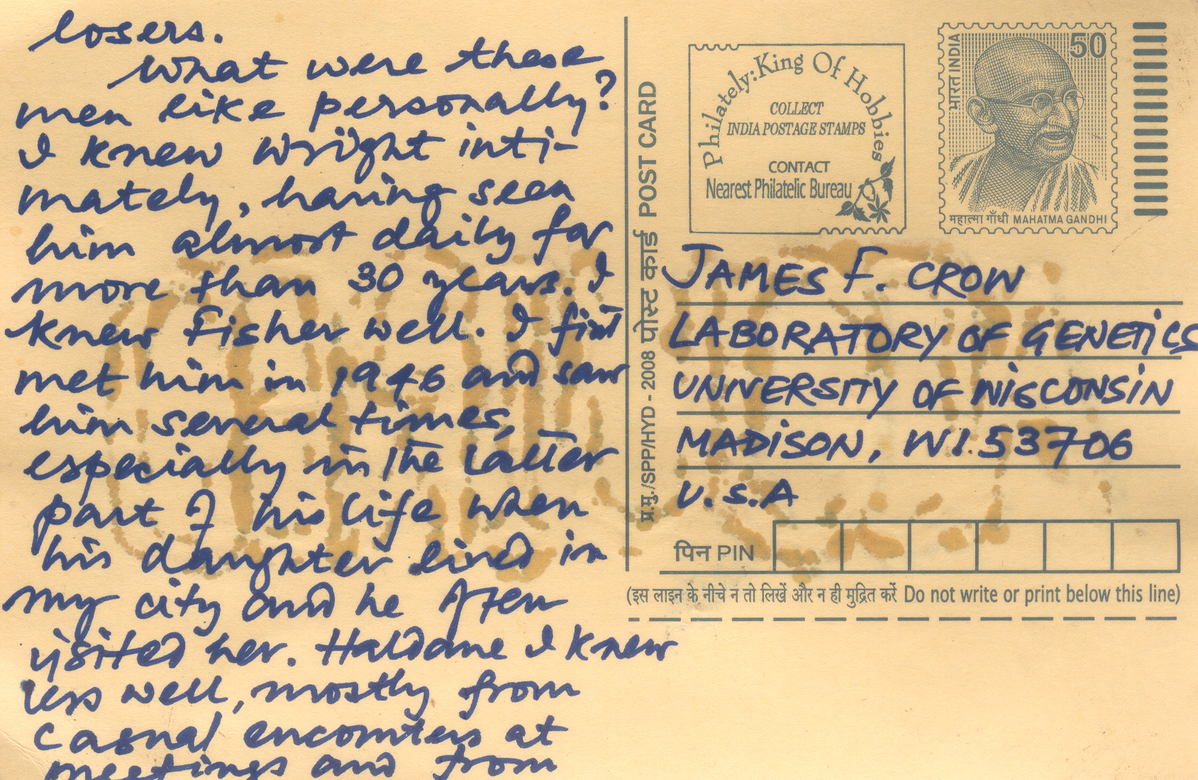 losers.
What were these
men like personally?
I knew Wright inti-
mately, having seen
him almost daily for
more than 30 years. I
knew Fisher well. I first
met him in 1946 and saw
him several times,
especially in the latter
part of his life when
his daughter lived in
my city and he often
visited her. Haldane I knew
less well, mostly from
casual encounters at
meetings and from
प्र.मु./SPP/HYD - 2008 पोस्ट कार्ड POST CARD
Philately: King Of Hobbies
COLLECT
INDIA POSTAGE STAMPS
CONTACT
Nearest Philatelic Bureau
भारत INDIA
50
महात्मा गाँधी MAHATMA GANDHI
JAMES F. CROW
LABORATORY OF GENETICS
UNIVERSITY OF WISCONSIN
MADISON, WI. 53706
U.S.A
पिन PIN
(इस लाइन के नीचे न तो लिखें और न ही मुद्रित करें Do not write or print below this line)